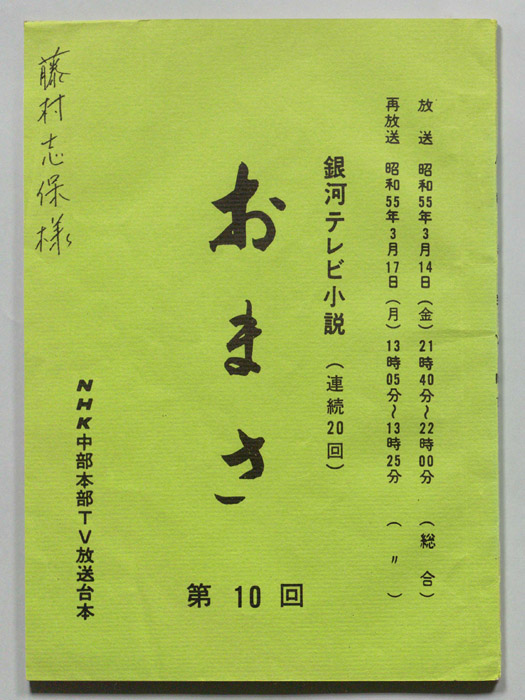 放送 昭和55年3月14日（金）21時40分〜22時00分（総合）
再放送 昭和55年3月17日（月）13時05分〜13時25分（〃）
銀河テレビ小説（連続20回）
おまさ
第10回
NHK中部本部TV放送台本
藤村志保様